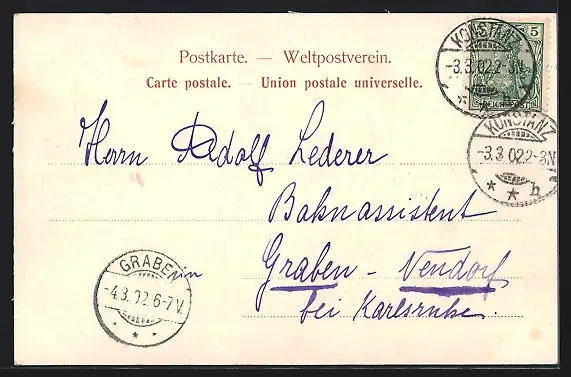 Postkarte. — Weltpostverein.
Carte postale. — Union postale universelle.
5
KONSTANZ
-3.3.02.2-3N.
KONSTANZ
-3.3.02.2-3N
* * h
Herrn Adolf Lederer
Bahnassistent
in Graben - Neudorf
bei Karlsruhe.
GRABEN
-4.3.02.6-7V.